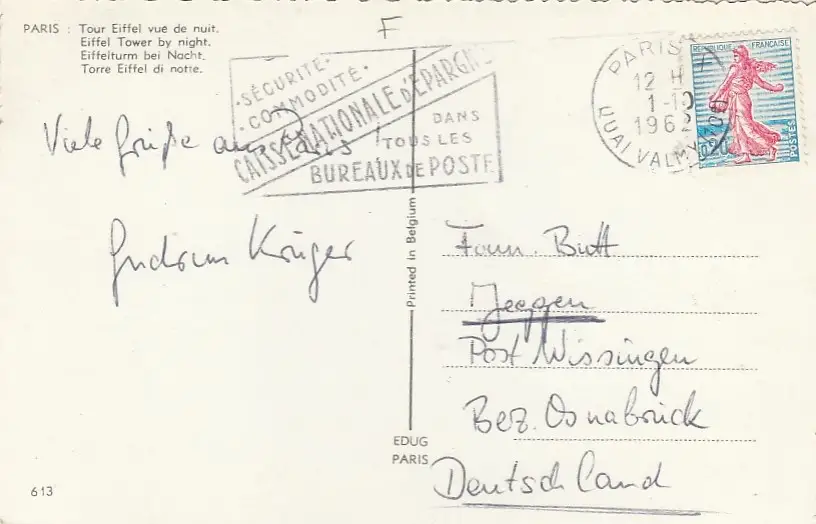 PARIS : Tour Eiffel vue de nuit.
Eiffel Tower by night.
Eiffelturm bei Nacht.
Torre Eiffel di notte.
F
·SÉCURITÉ·
·COMMODITÉ·
CAISSE NATIONALE D'ÉPARGNE
DANS
TOUS LES
BUREAUX DE POSTE
PARIS
12 H
1-10
1962
QUAI VALMY
REPUBLIQUE FRANÇAISE
0,20
POSTES
Viele Grüße aus Paris!
Gudrun Krüger
Printed in Belgium
Fam. Butt
Jeggen
Post Wissingen
Bez. Osnabrück
Deutschland
EDUG
PARIS
613